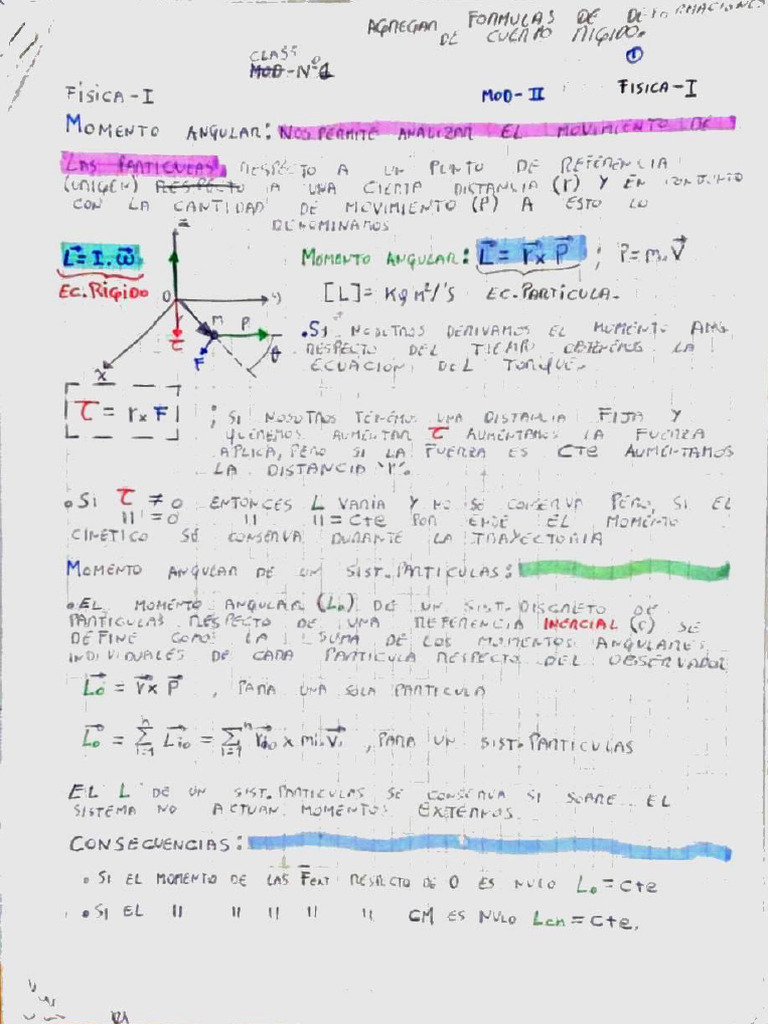 AGREGAR FORMULAS DE DEFORMACIONES
DE CUERPO RIGIDO.
CLASS
MOD-Nº1
①
FISICA-I
MOD-II
FISICA-I
MOMENTO ANGULAR: NOS PERMITE ANALIZAR EL MOVIMIENTO DE
LAS PARTICULAS, RESPECTO A UN PUNTO DE REFERENCIA
(ORIGEN) RESPECTO A UNA CIERTA DISTANCIA (r) Y EN CONJUNTO
CON LA CANTIDAD DE MOVIMIENTO (P) A ESTO LO
DENOMINAMOS
L⃗ = I.ω⃗
EC. RIGIDO
MOMENTO ANGULAR: L⃗ = r⃗ x P⃗ ; P = m.V⃗
[L] = Kg m²/s EC. PARTICULA.
Z
O
Y
r
M
P
τ
F
θ
X
• SI NOSOTROS DERIVAMOS EL MOMENTO ANG
RESPECTO DEL TIEMPO OBTENEMOS LA
ECUACION DEL TORQUE.
τ = r x F
; SI NOSOTROS TENEMOS UNA DISTANCIA FIJA Y
QUEREMOS AUMENTAR τ AUMENTAMOS LA FUERZA
APLICA, PERO SI LA FUERZA ES CTE AUMENTAMOS
LA DISTANCIA "r".
• SI τ ≠ 0 ENTONCES L VARIA Y NO SE CONSERVA PERO, SI EL
" = 0 " " = CTE POR ENDE EL MOMENTO
CINETICO SE CONSERVA DURANTE LA TRAYECTORIA
MOMENTO ANGULAR DE UN SIST. PARTICULAS:
• EL MOMENTO ANGULAR (Lo) DE UN SIST. DISCRETO DE
PARTICULAS RESPECTO DE UNA REFERENCIA INERCIAL (O) SE
DEFINE COMO LA SUMA DE LOS MOMENTOS ANGULARES
INDIVIDUALES DE CADA PARTICULA RESPECTO DEL OBSERVADOR
L⃗o = r⃗ x P⃗ , PARA UNA SOLA PARTICULA
L⃗o = Σⁿᵢ₌₁ L⃗io = Σⁿᵢ₌₁ r⃗io x mi.v⃗i , PARA UN SIST. PARTICULAS
EL L DE UN SIST. PARTICULAS SE CONSERVA SI SOBRE EL
SISTEMA NO ACTUAN MOMENTOS EXTERNOS.
CONSECUENCIAS:
• SI EL MOMENTO DE LAS Fext RESPECTO DE O ES NULO Lo = CTE
• SI EL " " " " " CM ES NULO Lcm = CTE.